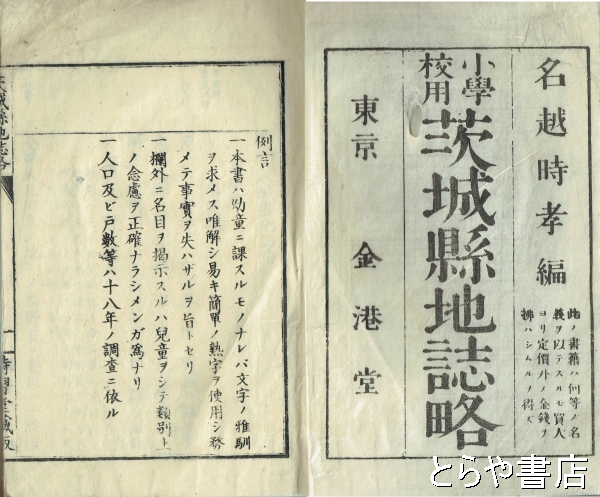 名越時孝編
此ノ書籍ハ何等ノ名
義ヲ以テスルモ買人
ヨリ定價外ノ金錢ヲ
拂ハシムルヲ得ズ
小學
校用
茨城縣地誌略
東京 金港堂
例言
一本書ハ幼童ニ課スルモノナレバ文字ノ雅馴
ヲ求メス唯解シ易キ簡單ノ熟字ヲ使用シ務
メテ事實ヲ失ハザルヲ旨トセリ
一欄外ニ名目ヲ揭示スルハ兒童ヲシテ類別上
ノ念慮ヲ正確ナラシメンガ爲ナリ
一人口及ビ戸數等ハ十八年ノ調査ニ依ル
茨城縣地誌略
とらや書店